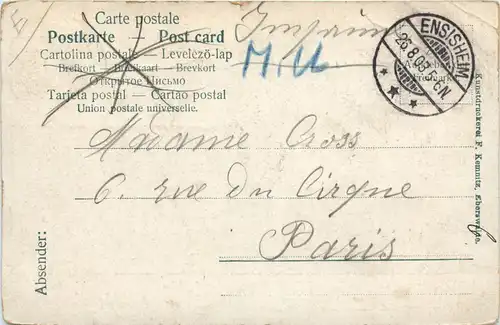 Carte postale
Postkarte — Post card
Cartolina postale — Levelező-lap
Brefkort — Briefkaart — Brevkort
Открытое письмо
Tarjeta postal — Cartão postal
Union postale universelle.
Imprimé
M. U
ENSISHEIM
Madame Cross
6. rue du Cirque
Paris
Absender:
Kunstdruckerei F. Kemnitz, Eberswalde.